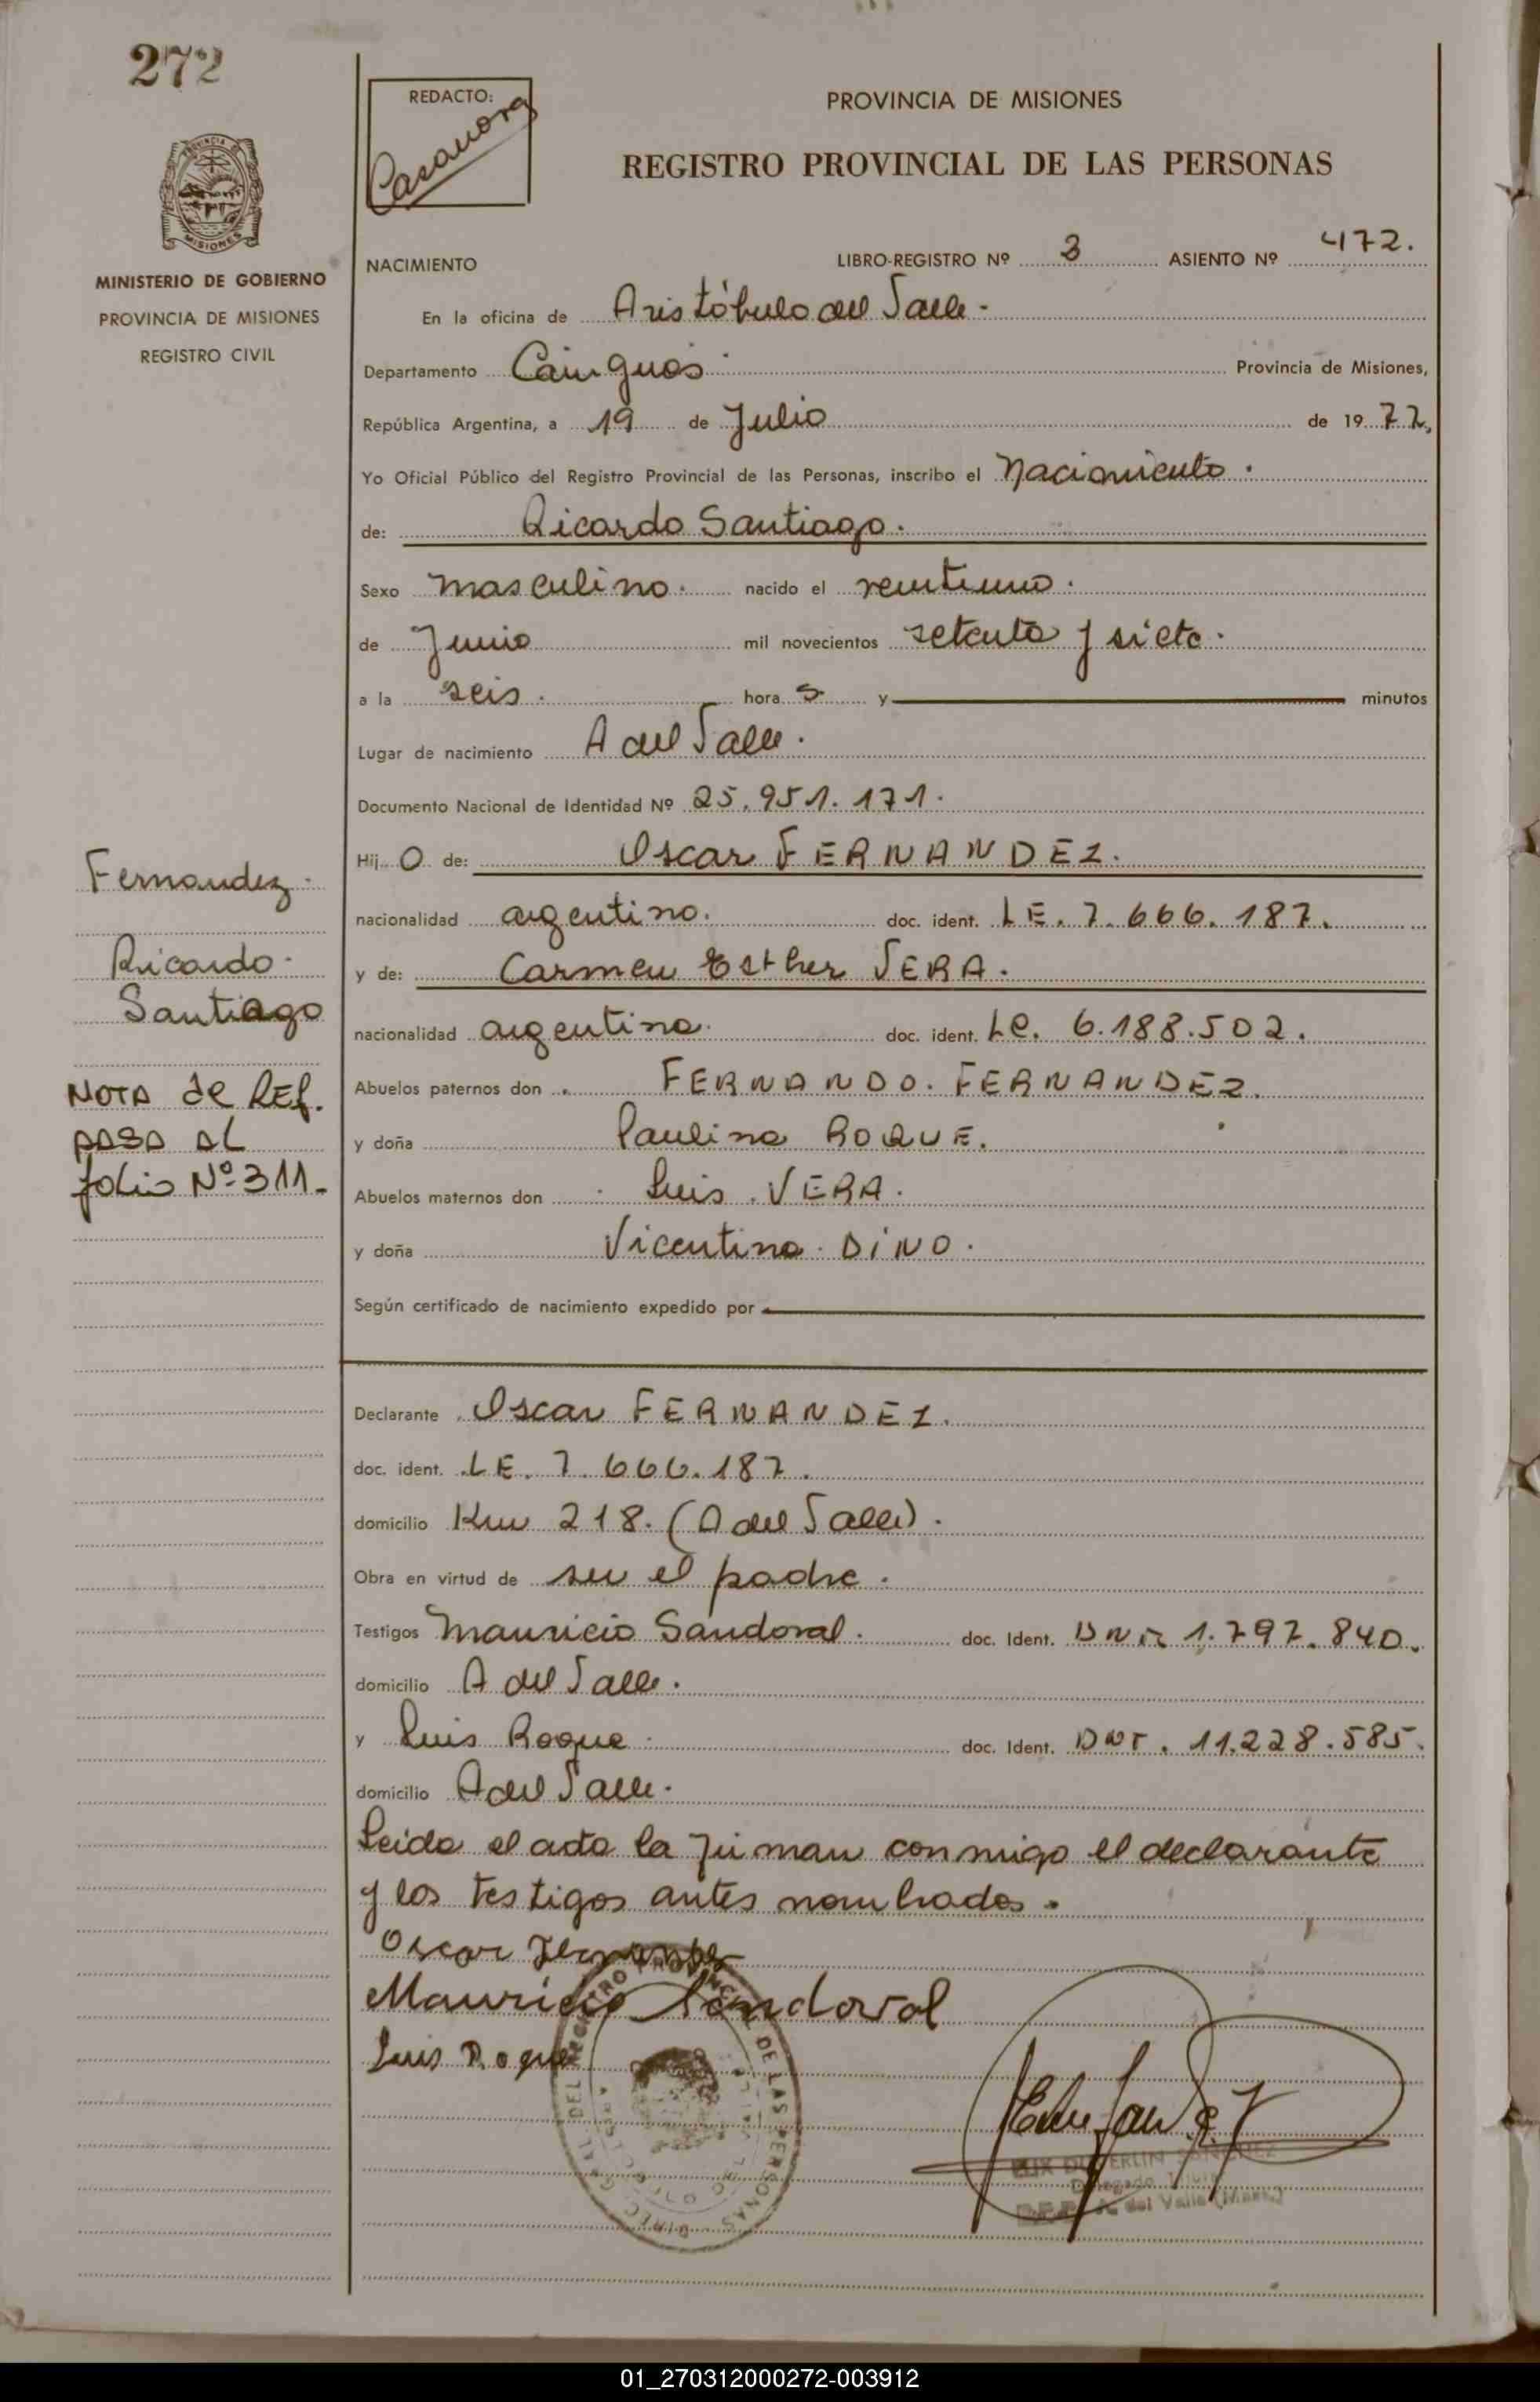 272
REDACTO:
Casanova
PROVINCIA DE MISIONES
REGISTRO PROVINCIAL DE LAS PERSONAS
PROVINCIA DE
MISIONES
MINISTERIO DE GOBIERNO
PROVINCIA DE MISIONES
REGISTRO CIVIL
NACIMIENTO LIBRO-REGISTRO Nº 3 ASIENTO Nº 472.
En la oficina de Aristóbulo del Valle.
Departamento Cainguás Provincia de Misiones,
República Argentina, a 19 de Julio de 1977,
Yo Oficial Público del Registro Provincial de las Personas, inscribo el Nacimiento.
de: Ricardo Santiago.
Sexo masculino. nacido el veintiuno.
de Junio mil novecientos setenta y siete.
a la seis. hora s y minutos
Lugar de nacimiento A del Valle.
Documento Nacional de Identidad Nº 25.951.171.
Hij o de: Oscar FERNANDEZ.
nacionalidad argentino. doc. ident. LE. 7.666.187.
y de: Carmen Esther VERA.
nacionalidad argentina. doc. ident. LC. 6.188.502.
Abuelos paternos don FERNANDO. FERNANDEZ.
y doña Paulina ROQUE.
Abuelos maternos don Luis VERA.
y doña Vicentina DINO.
Según certificado de nacimiento expedido por
Fernandez
Ricardo
Santiago
NOTA de REf.
PASA AL
folio Nº 311.-
Declarante Oscar FERNANDEZ.
doc. ident. LE. 7.666.187.
domicilio Km 218. (A del Valle).
Obra en virtud de ser el padre.
Testigos Mauricio Sandoval. doc. Ident. DNI 1.797.840.
domicilio A del Valle.
y Luis Roque. doc. Ident. DNI. 11.228.585.
domicilio A del Valle.
Leida el acta la firman conmigo el declarante
y los testigos antes nombrados.
Oscar Fernandez
Mauricio Sandoval
Luis Roque
DEL REGISTRO PROVINCIAL DE LAS PERSONAS
Delegado Titular
A. del Valle (Mnes.)
01_270312000272-003912